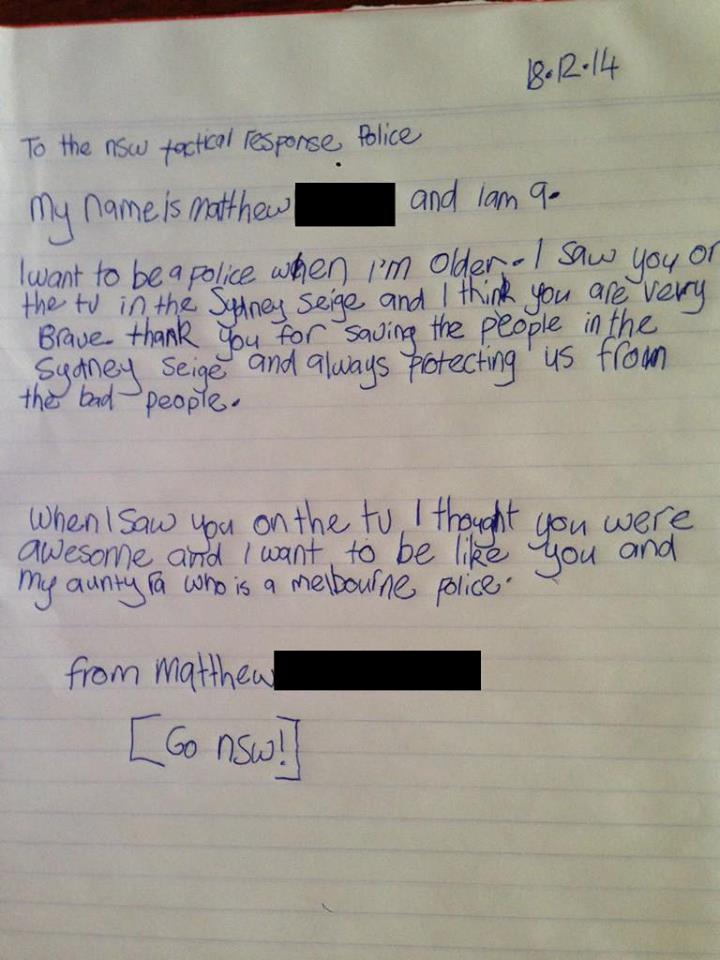 18.12.14
To the nsw tactical response Police
My name is matthew and I am 9.
I want to be a police when I'm older. I saw you on
the tv in the Sydney Seige and I think you are very
Brave. thank you for saving the people in the
Sydney Seige and always protecting us from
the bad people.
When I saw you on the tv I thought you were
awesome and I want to be like you and
my aunty who is a melbourne police.
from matthew
[Go nsw!]